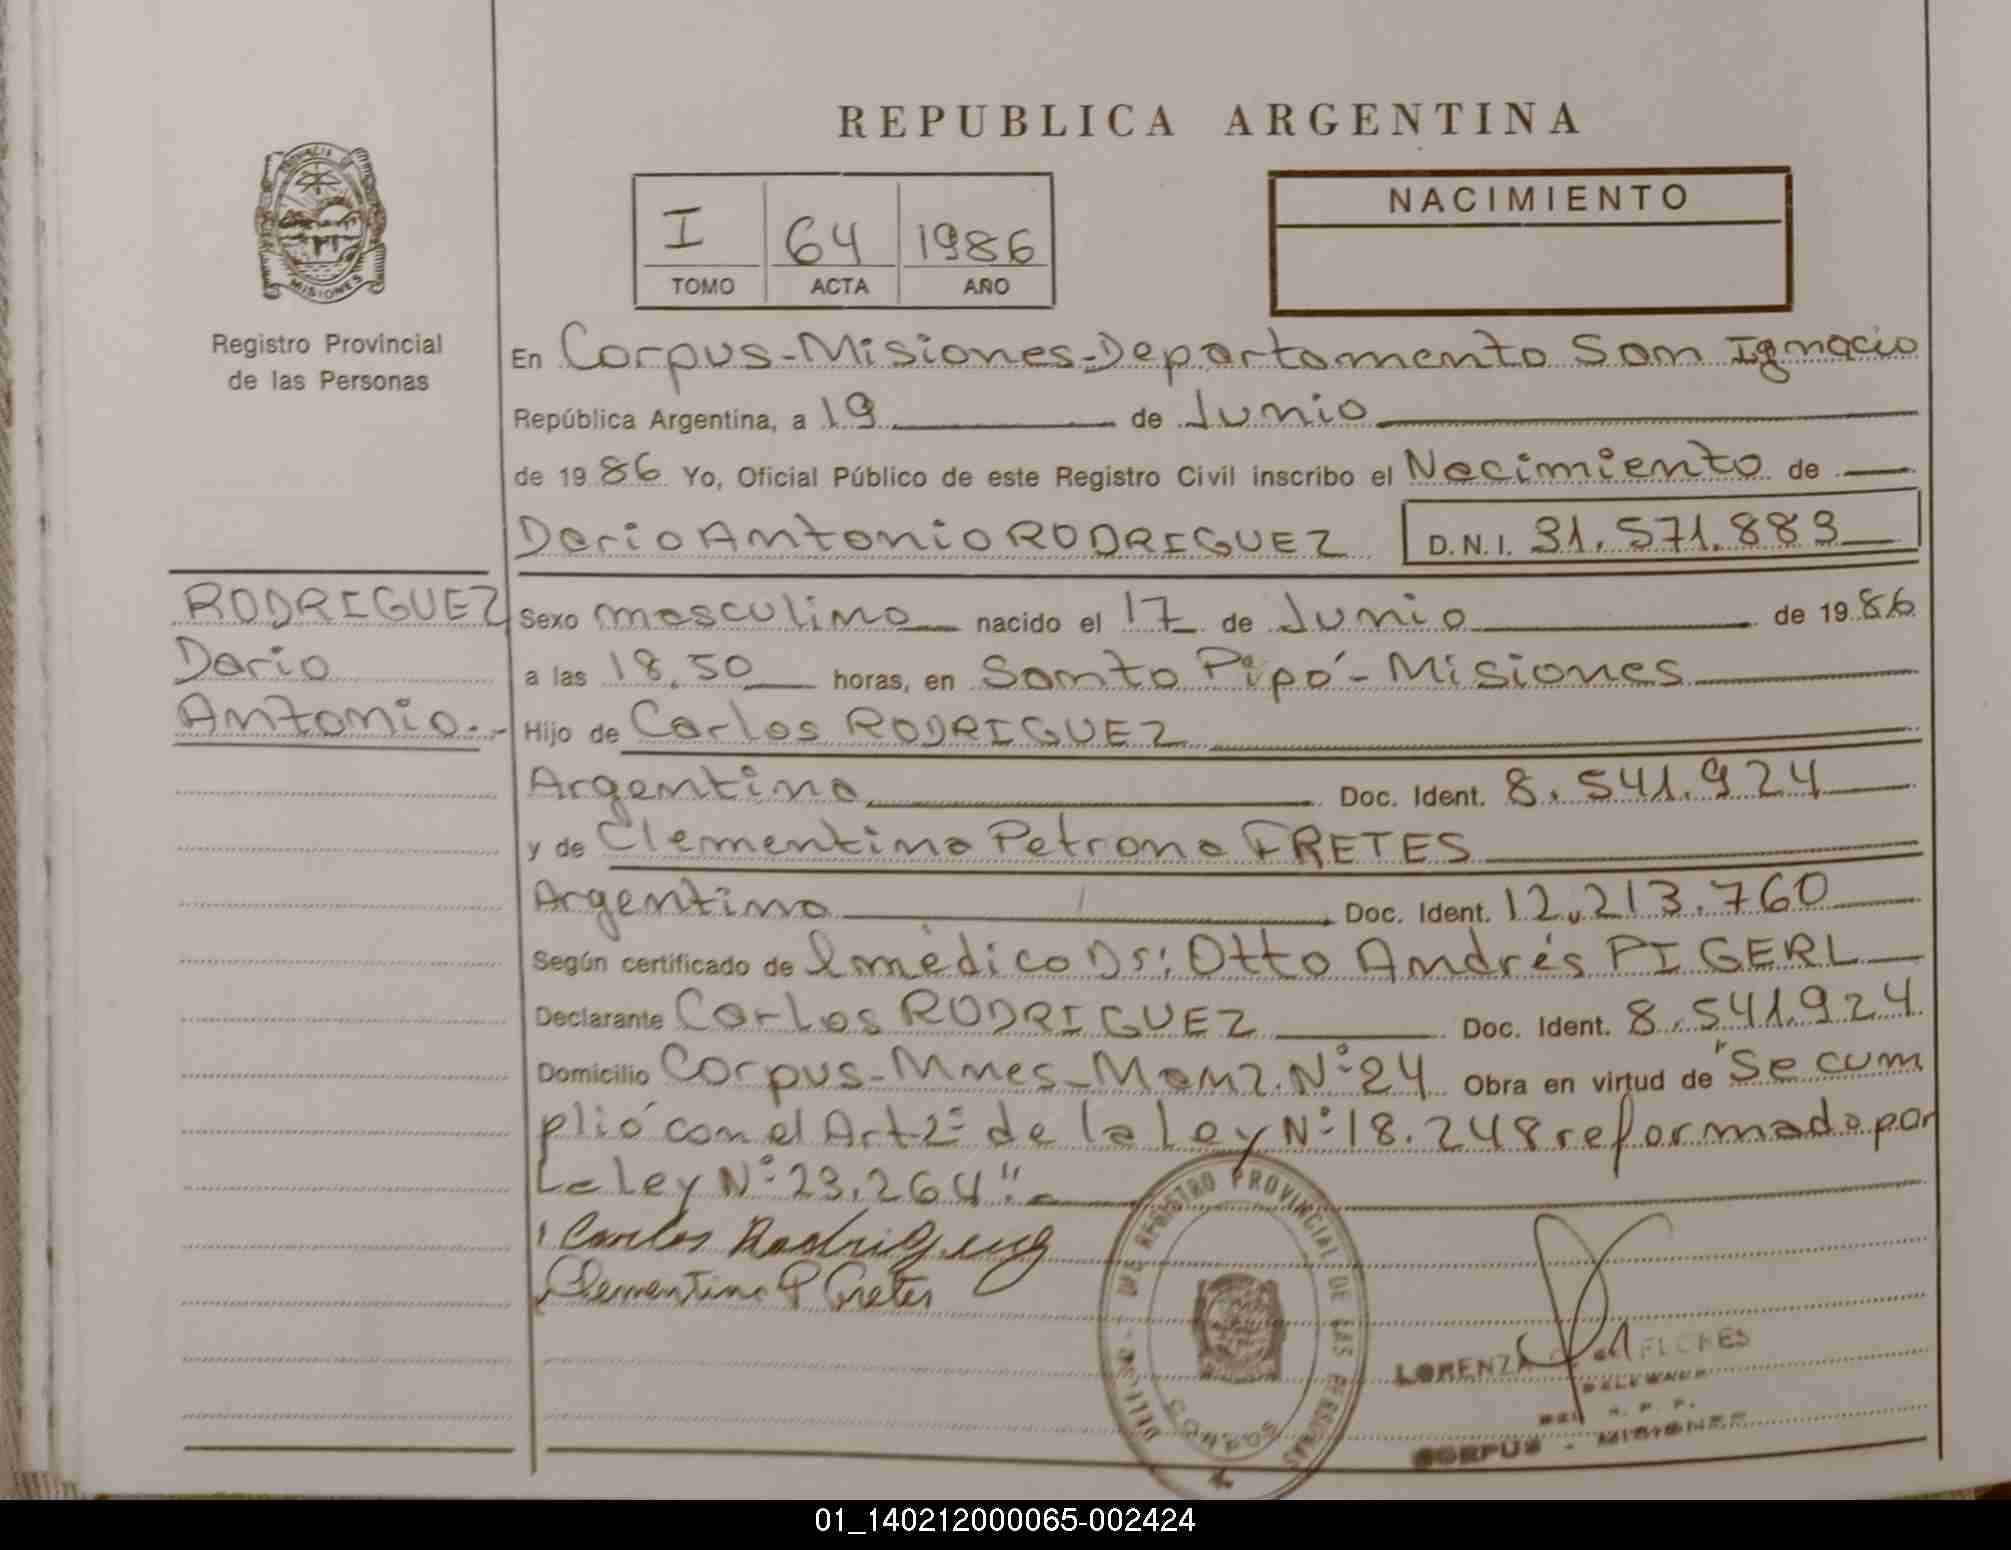 REPUBLICA ARGENTINA
PROVINCIA DE
MISIONES
Registro Provincial
de las Personas
I 64 1986
TOMO ACTA AÑO
NACIMIENTO
En Corpus-Misiones-Departamento San Ignacio
República Argentina, a 19 de Junio
de 1986 Yo, Oficial Público de este Registro Civil inscribo el Nacimiento de
Dario Antonio RODRIGUEZ D.N.I. 31.571.883
RODRIGUEZ
Dario
Antonio.-
Sexo masculino nacido el 17 de Junio de 1986
a las 18,50 horas, en Santo Pipó - Misiones
Hijo de Carlos RODRIGUEZ
Argentino Doc. Ident. 8.541.924
y de Clementina Petrona FRETES
Argentina Doc. Ident. 12.213.760
Según certificado de médico Dr: Otto Andrés PIGERL
Declarante Carlos RODRIGUEZ Doc. Ident. 8.541.924
Domicilio Corpus-Mnes-Manz. Nº 24 Obra en virtud de "Se cum
plió con el Art 2º de la Ley Nº 18.248 reformado por
La Ley Nº 23.264".-
Carlos Rodriguez
Clementina P Fretes
REGISTRO PROVINCIAL DE LAS PERSONAS
CORPUS
LORENZA FLORES
DEL R. P. P.
CORPUS - MISIONES
01_140212000065-002424